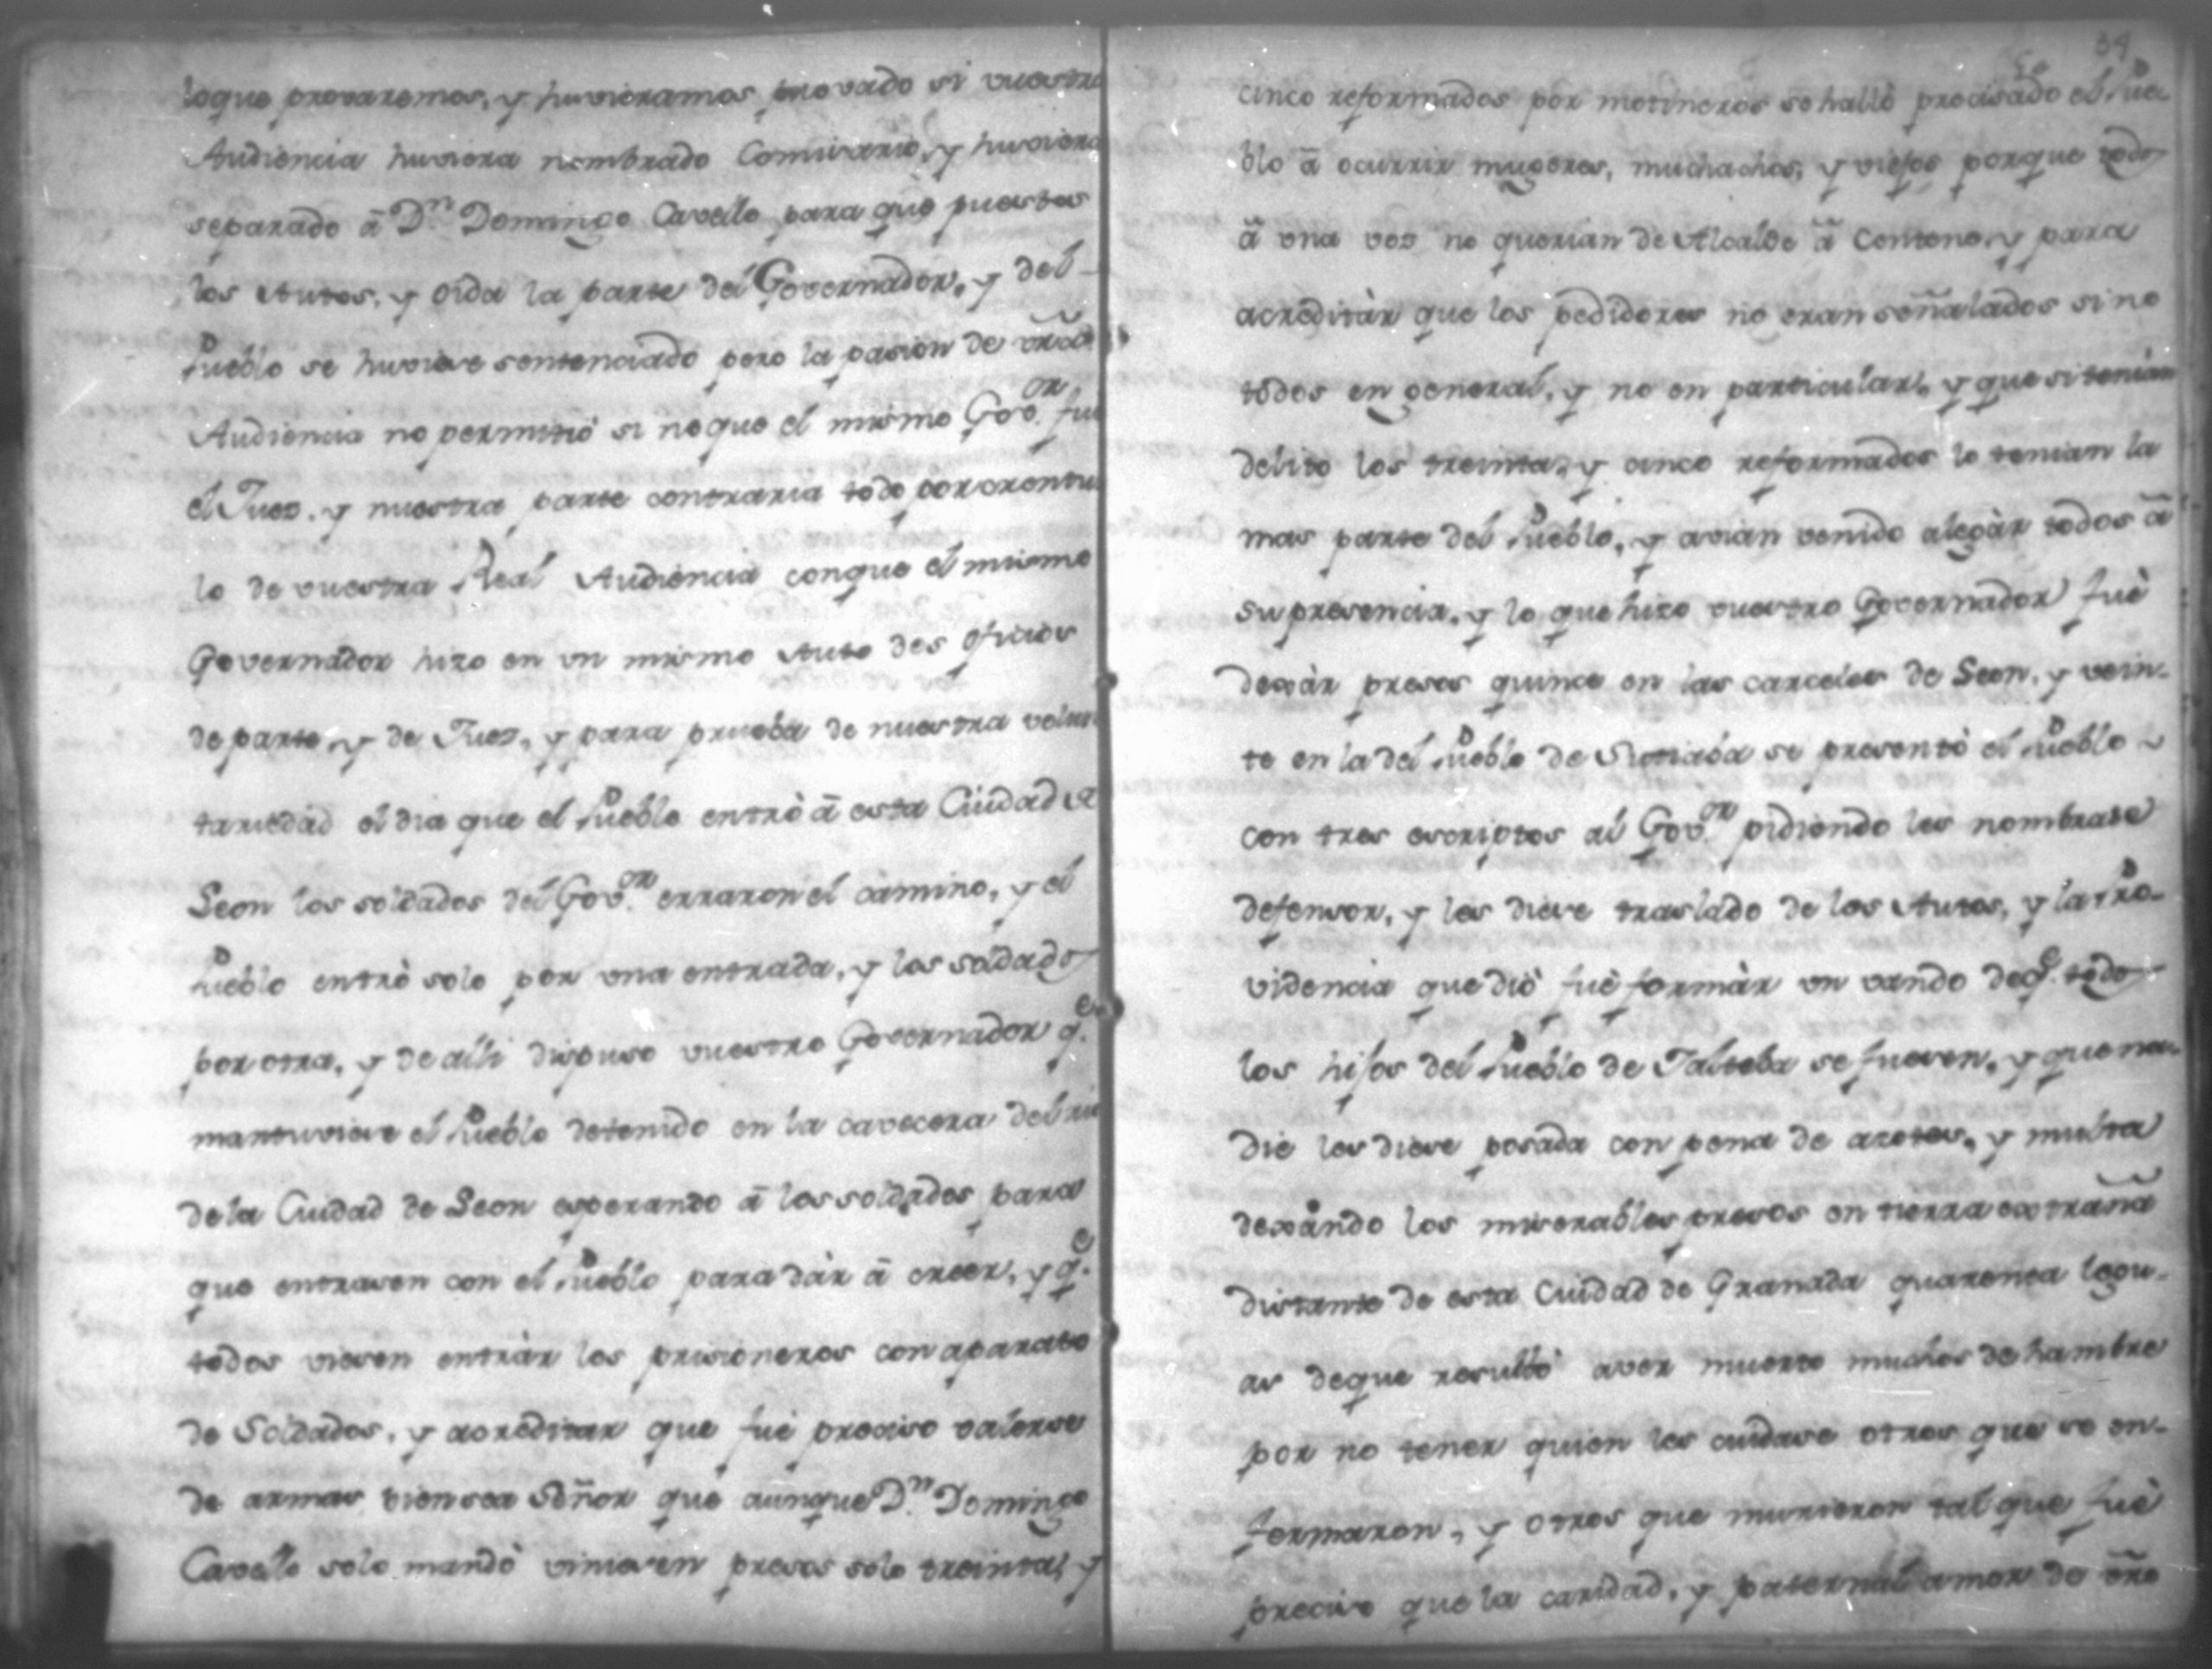 loque provaremos, y huvieramos provado si vuestra
Audiencia huviera nombrado Comisario, y huviera
separado â D.n Domingo Cavello para que puestos
los Autos, y oida la parte del Governador, y del
Pueblo se huviese sentenciado pero la pasion de vrâ
Audiencia no permitió si no que el mismo Gov.or fue
el Juez, y nuestra parte contraria todo por
lo de vuestra Real Audiencia conque el mismo
Governador hizo en un mismo Auto dos oficios
de parte, y de Juez, y para prueba de nuestra volun
tariedad el dia que el Pueblo entrò â esta Ciudad de
Leon los soldados del Gov.or erraron el camino, y el
Pueblo entrò solo por una entrada, y los soldados
por otra, y de alli dispuso vuestro Governador q.e
mantuviese el Pueblo detenido en la cavecera del rio
dela Ciudad de Leon esperando â los soldados para
que entrasen con el Pueblo para dàr â creer, y q.e
todos viesen entràr los prisioneros con aparato
de Soldados, y acreditar que fuè preciso valerse
de armas bien sea Señor que aunque D.n Domingo
Cavello solo mandò viniesen presos solo treinta, y
34
cinco reformados por motineros se hallò precisado el Pue-
blo â ocurrir mugeres, muchachos, y viejos porque todos
â una voz no querian de Alcalde â Centeno, y para
acreditàr que los pedidores no eran señalados sino
todos en general, y no en particular, y que si tenian
delito los treinta, y cinco reformados lo tenian la
mas parte del Pueblo, y avian venido alegàr todos â
su presencia, y lo que hizo vuestro Governador fuè
dexàr presos quince en las carceles de Leon, y vein-
te en la del Pueblo de Sutiaba se presentò el Pueblo
con tres escriptos al Gov.or pidiendo les nombrase
defensor, y les diese traslado de los Autos, y la Pro-
videncia que diò fuè formàr un vando de q.e todos
los hijos del Pueblo de Jalteba se fuesen, y que na-
die les diese posada con pena de azotes, y multa
dexando los miserables presos en tierra extraña
distante de esta Ciudad de Granada quarenta legu-
as deque resultò aver muerto muchos de hambre
por no tener quien les cuidase otros que se en-
fermaron, y otros que murieron tal que fuè
preciso que la caridad, y paternal amor de vrô